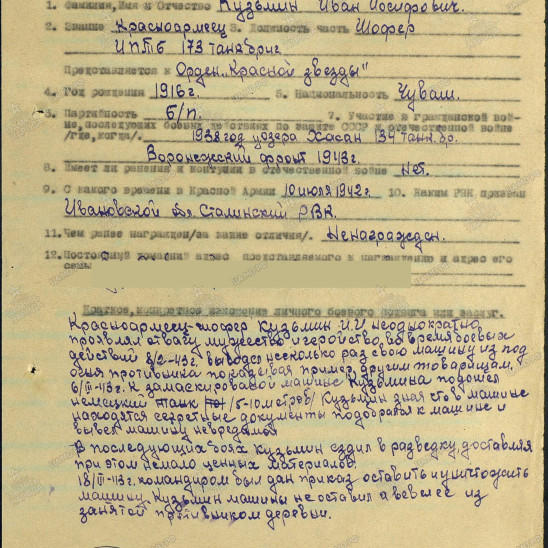 1. Фамилия, Имя и Отчество Кузьмин Иван Иосифович.
2. Звание Красноармеец 3. Должность часть Шофер
ИПТБ 173 танк бриг
Представляется к Орден "Красной звезды"
4. Год рождения 1916 г. 5. Национальность Чуваш.
6. Партийность б/п. 7. Участие в гражданской вой-
не, последующих боевых действиях по защите СССР и отечественной войне
/где, когда/. 1938 год у озера Хасан 134 танк. бр.
Воронежский фронт 1943 г.
8. Имеет ли ранения и контузии в отечественной войне Нет.
9. С какого времени в Красной Армии 10 июля 1942 г. 10. Каким РВК призван
Ивановской обл Сталинский РВК.
11. Чем ранее награжден /за какие отличия/. Ненагражден.
12. Постоянный домашний адрес представляемого к награждению и адрес его
семьи
Краткое, конкретное изложение личного боевого подвига или заслуг.
Красноармеец-шофер Кузьмин И.И неоднократно
проявлял отвагу мужество и геройство во время боевых
действий 8/2-43 г. выводил несколько раз свою машину из под
огня противника показывая пример другим товарищам.
6/III-43 г. К замаскированой машине Кузьмина подошел
немецкий танк /5-10 метров/ Кузьмин зная что в машине
находятся секретные документы подобрался к машине и
вывел машину невредимой
В последующих боях Кузьмин ездил в разведку, доставляя
при этом немало ценных материалов.
18/III-43 г. командиром был дан приказ оставить и уничтожить
машину, Кузьмин машины не оставил а вывел ее из
занятой противником деревни.